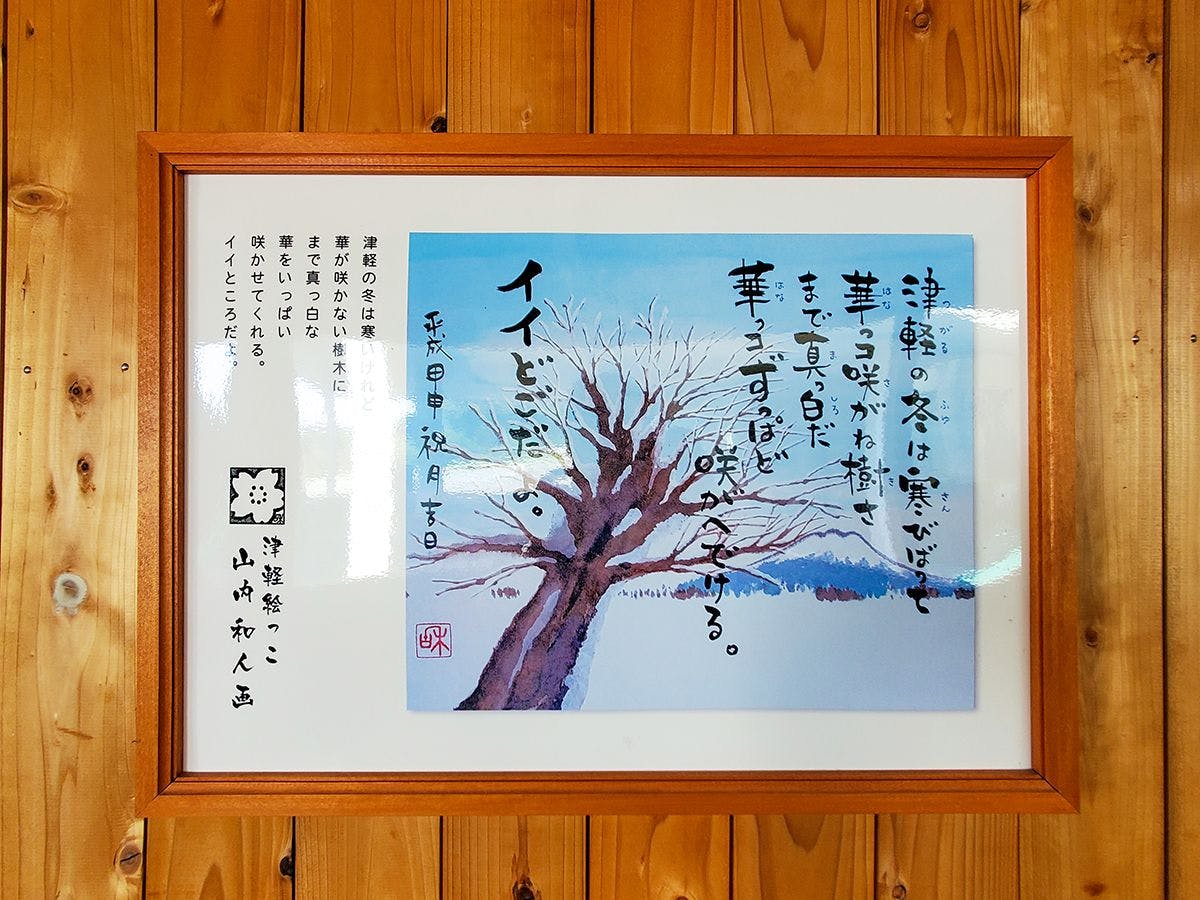 津軽の冬は寒びばって
つがる ふゆ さん
華ッコ咲がね樹さ
はな さ き
まで真っ白だ
ま しろ
華ッコずっぱど
はな
咲がへでける。
イイどごだよ。
平成甲申 祝月吉日
津軽の冬は寒いけれど
華が咲かない樹木に
まで真っ白な
華をいっぱい
咲かせてくれる。
イイところだよ。
津軽絵っこ
山内和人画